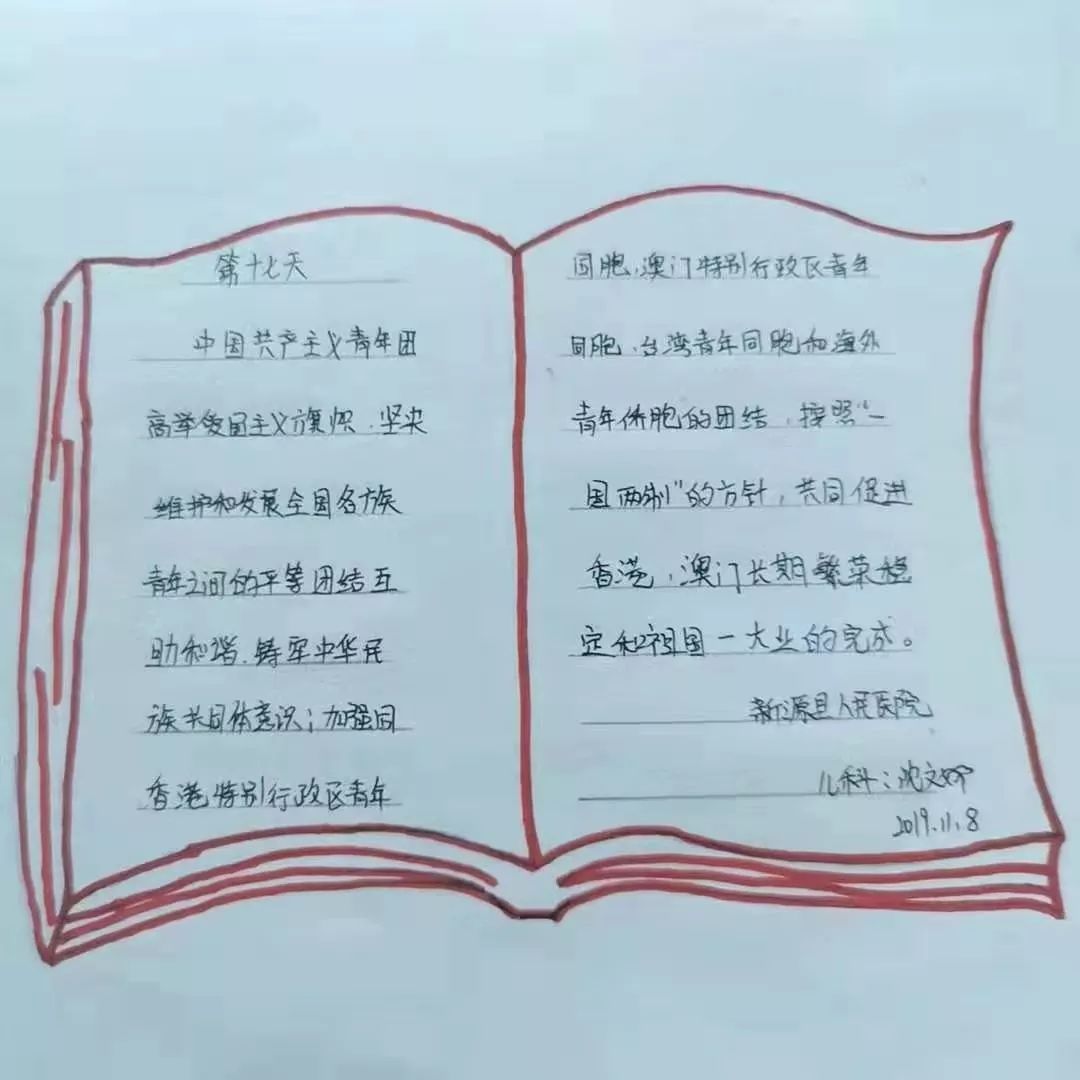 第十七天
中国共产主义青年团
高举爱国主义旗帜、坚决
维护和发展全国各族
青年之间的平等团结互
助和谐、铸牢中华民
族共同体意识；加强同
香港特别行政区青年
同胞、澳门特别行政区青年
同胞、台湾青年同胞和海外
青年侨胞的团结，按照“一
国两制”的方针，共同促进
香港，澳门长期繁荣稳
定和祖国一大业的完成。
新源县人民医院
儿科：沈文婷
2019.11.8